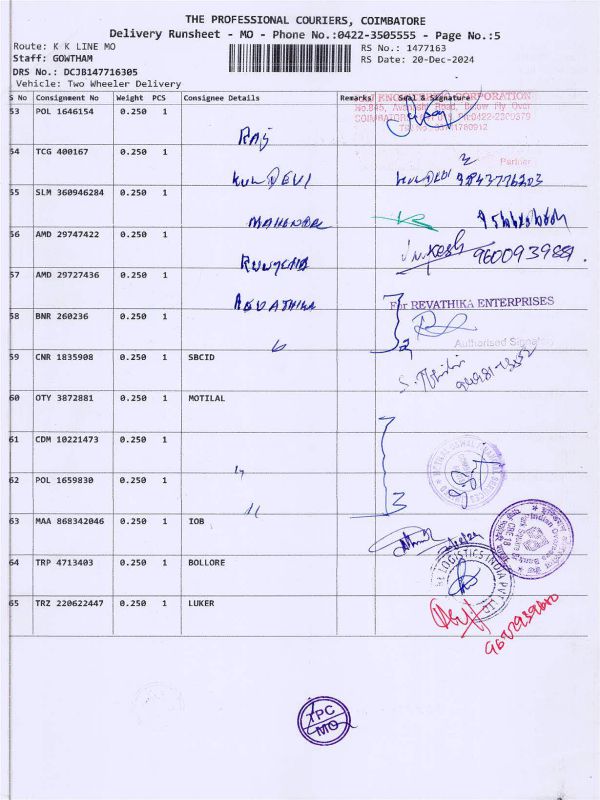 THE PROFESSIONAL COURIERS, COIMBATORE
Delivery Runsheet - MO - Phone No.:0422-3505555 - Page No.:5
Route: K K LINE MO
RS No.: 1477163
Staff: GOWTHAM
RS Date: 20-Dec-2024
DRS No.: DCJB147716305
Vehicle: Two Wheeler Delivery
S No Consignment No Weight PCS Consignee Details Remarks Seal & Signature
CORPORATION
Road, Below Fly Over
53 POL 1646154 0.250 1
RAJ
54 TCG 400167 0.250 1
Partner
KULDEVI KULDEVI 9843776203
55 SLM 360946284 0.250 1
56 AMD 29747422 0.250 1
9600939881.
57 AMD 29727436 0.250 1
REVATHIKA
For REVATHIKA ENTERPRISES
58 BNR 260236 0.250 1
Authorised Signatory
59 CNR 1835908 0.250 1 SBCID
60 OTY 3872881 0.250 1 MOTILAL
61 CDM 10221473 0.250 1
62 POL 1659830 0.250 1
63 MAA 868342046 0.250 1 IOB
Indian Overseas Bank
64 TRP 4713403 0.250 1 BOLLORE
LOGISTICS INDIA PVT LTD
65 TRZ 220622447 0.250 1 LUKER
TPC
MO